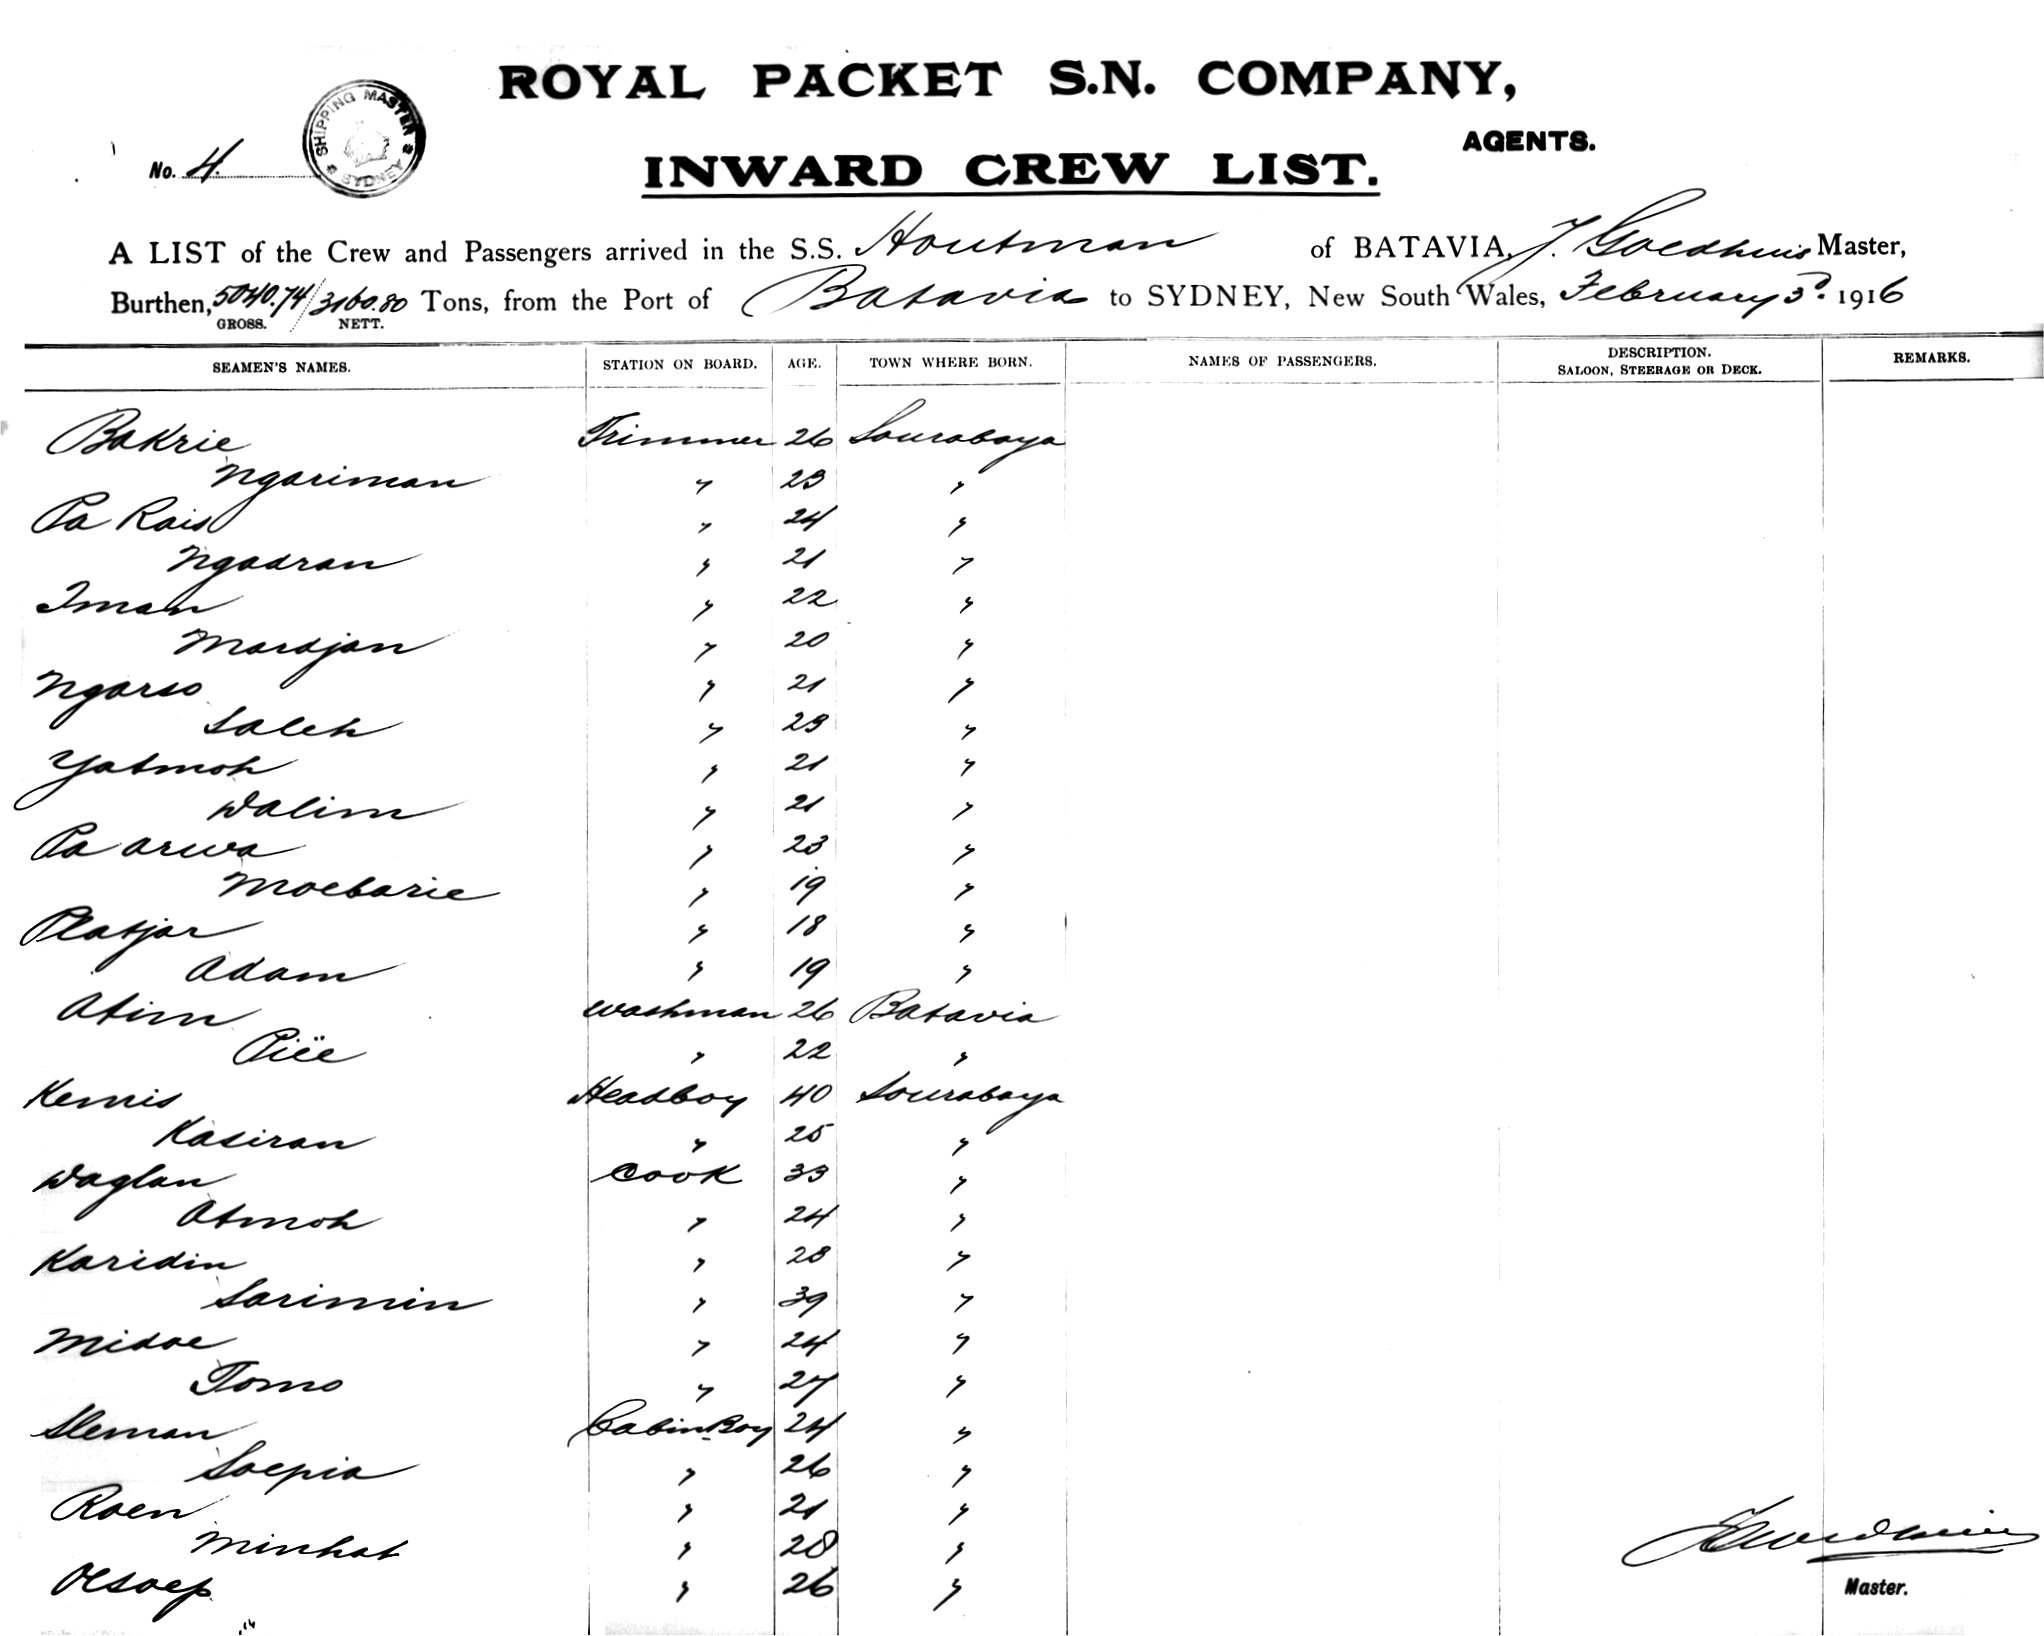 ROYAL PACKET S.N. COMPANY,
AGENTS.
No. 4.
SHIPPING MASTER SYDNEY
INWARD CREW LIST.
A LIST of the Crew and Passengers arrived in the S.S. Houtman of BATAVIA, J. Goedhuis Master,
Burthen, 5040.74/3160.80 Tons, from the Port of Batavia to SYDNEY, New South Wales, February 3d. 1916
GROSS. NETT.
SEAMEN'S NAMES. STATION ON BOARD. AGE. TOWN WHERE BORN. NAMES OF PASSENGERS. DESCRIPTION. REMARKS.
SALOON, STEERAGE OR DECK.
Bakrie Trimmer 26 Sourabaya
Ngariman " 23 "
Pa Rais " 24 "
Ngadran " 21 "
Iman " 22 "
Mardjan " 20 "
Ngarso " 21 "
Saleh " 23 "
Yatmoh " 21 "
Walim " 21 "
Pa arwa " 23 "
Moebarie " 19 "
Platjar " 18 "
Adam " 19 "
Atim Washman 26 Batavia
Piëe " 22 "
Kemis Headboy 40 Sourabaya
Kasiran " 25 "
Waglan Cook 33 "
Atmoh " 24 "
Karidin " 28 "
Sarimin " 39 "
Midoe " 24 "
Tomo " 27 "
Sleman Cabin Boy 24 "
Soepia " 26 "
Roen " 21 "
Minhat " 28 "
Oesoep " 26 "
J Goedhuis
Master.